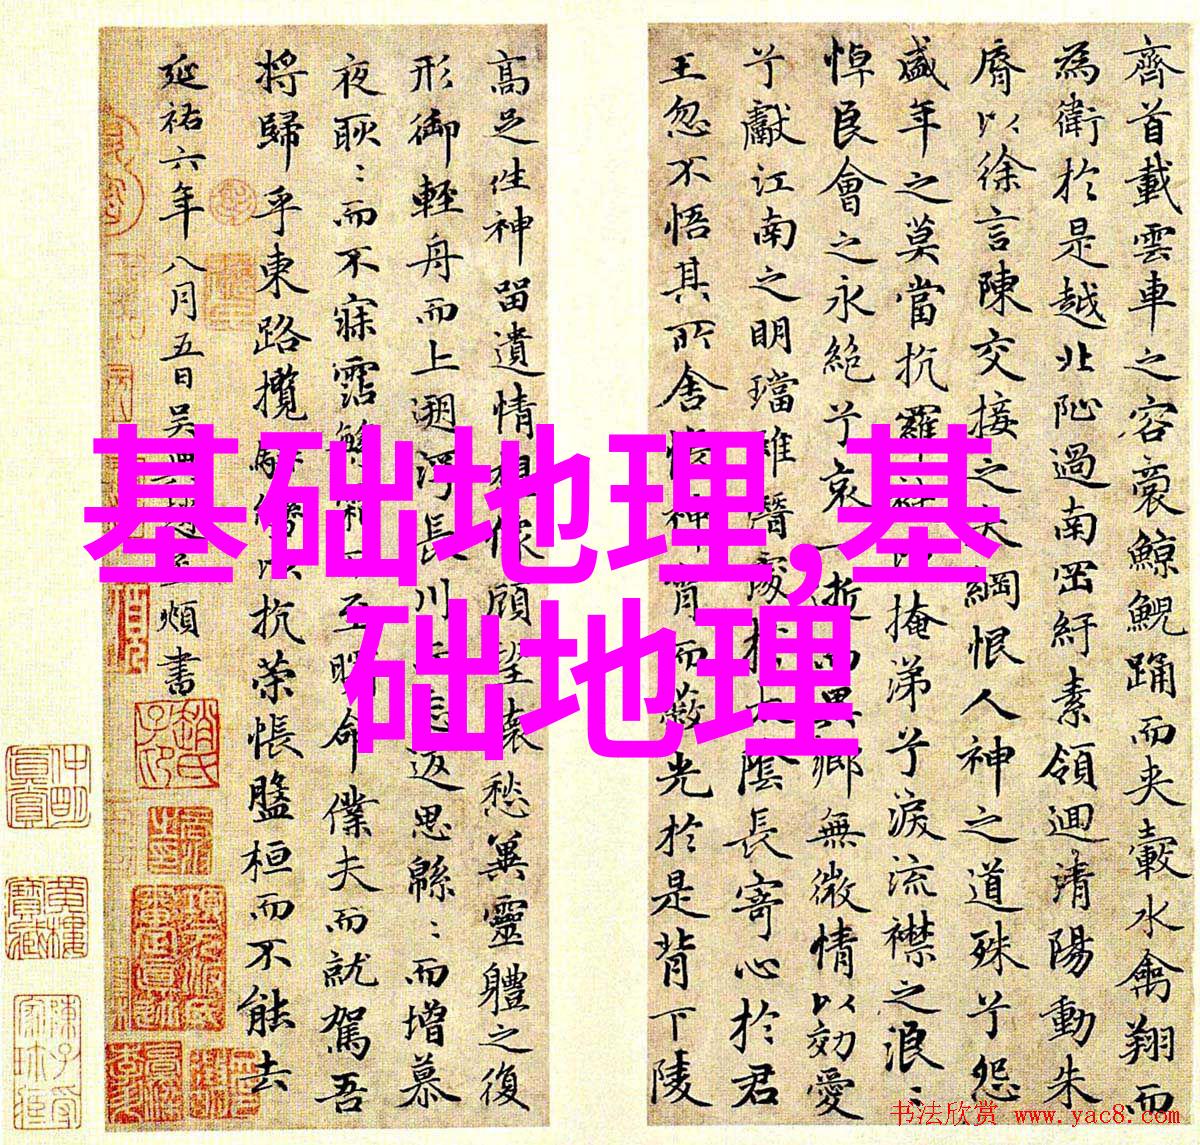 齊首載雲車之容裔鯨鯢踊而夾轂水禽翔而
為衛於是越北沚過南岡紆素領迴清陽動朱
脣以徐言陳交接之大綱恨人神之道殊兮怨
盛年之莫當抗羅掩涕兮淚流襟之浪〻
悼良會之永絕兮哀一逝而異鄉無微情以効愛
兮獻江南之明璫雖潛處於太陰長寄心於君
王忽不悟其所舍悵神宵而蔽光於是背下陵
高足往神留遺情想像顧望懷愁冀靈體之復
形御輕舟而上遡河長川忘返思緜〻而增慕
夜耿〻而不寐霑至曙命僕夫而就駕吾
將歸乎東路攬抗策悵盤桓而不能去
延祐六年八月五日吳書
基础地理,基
础地理
书法欣赏 www.yac8.com